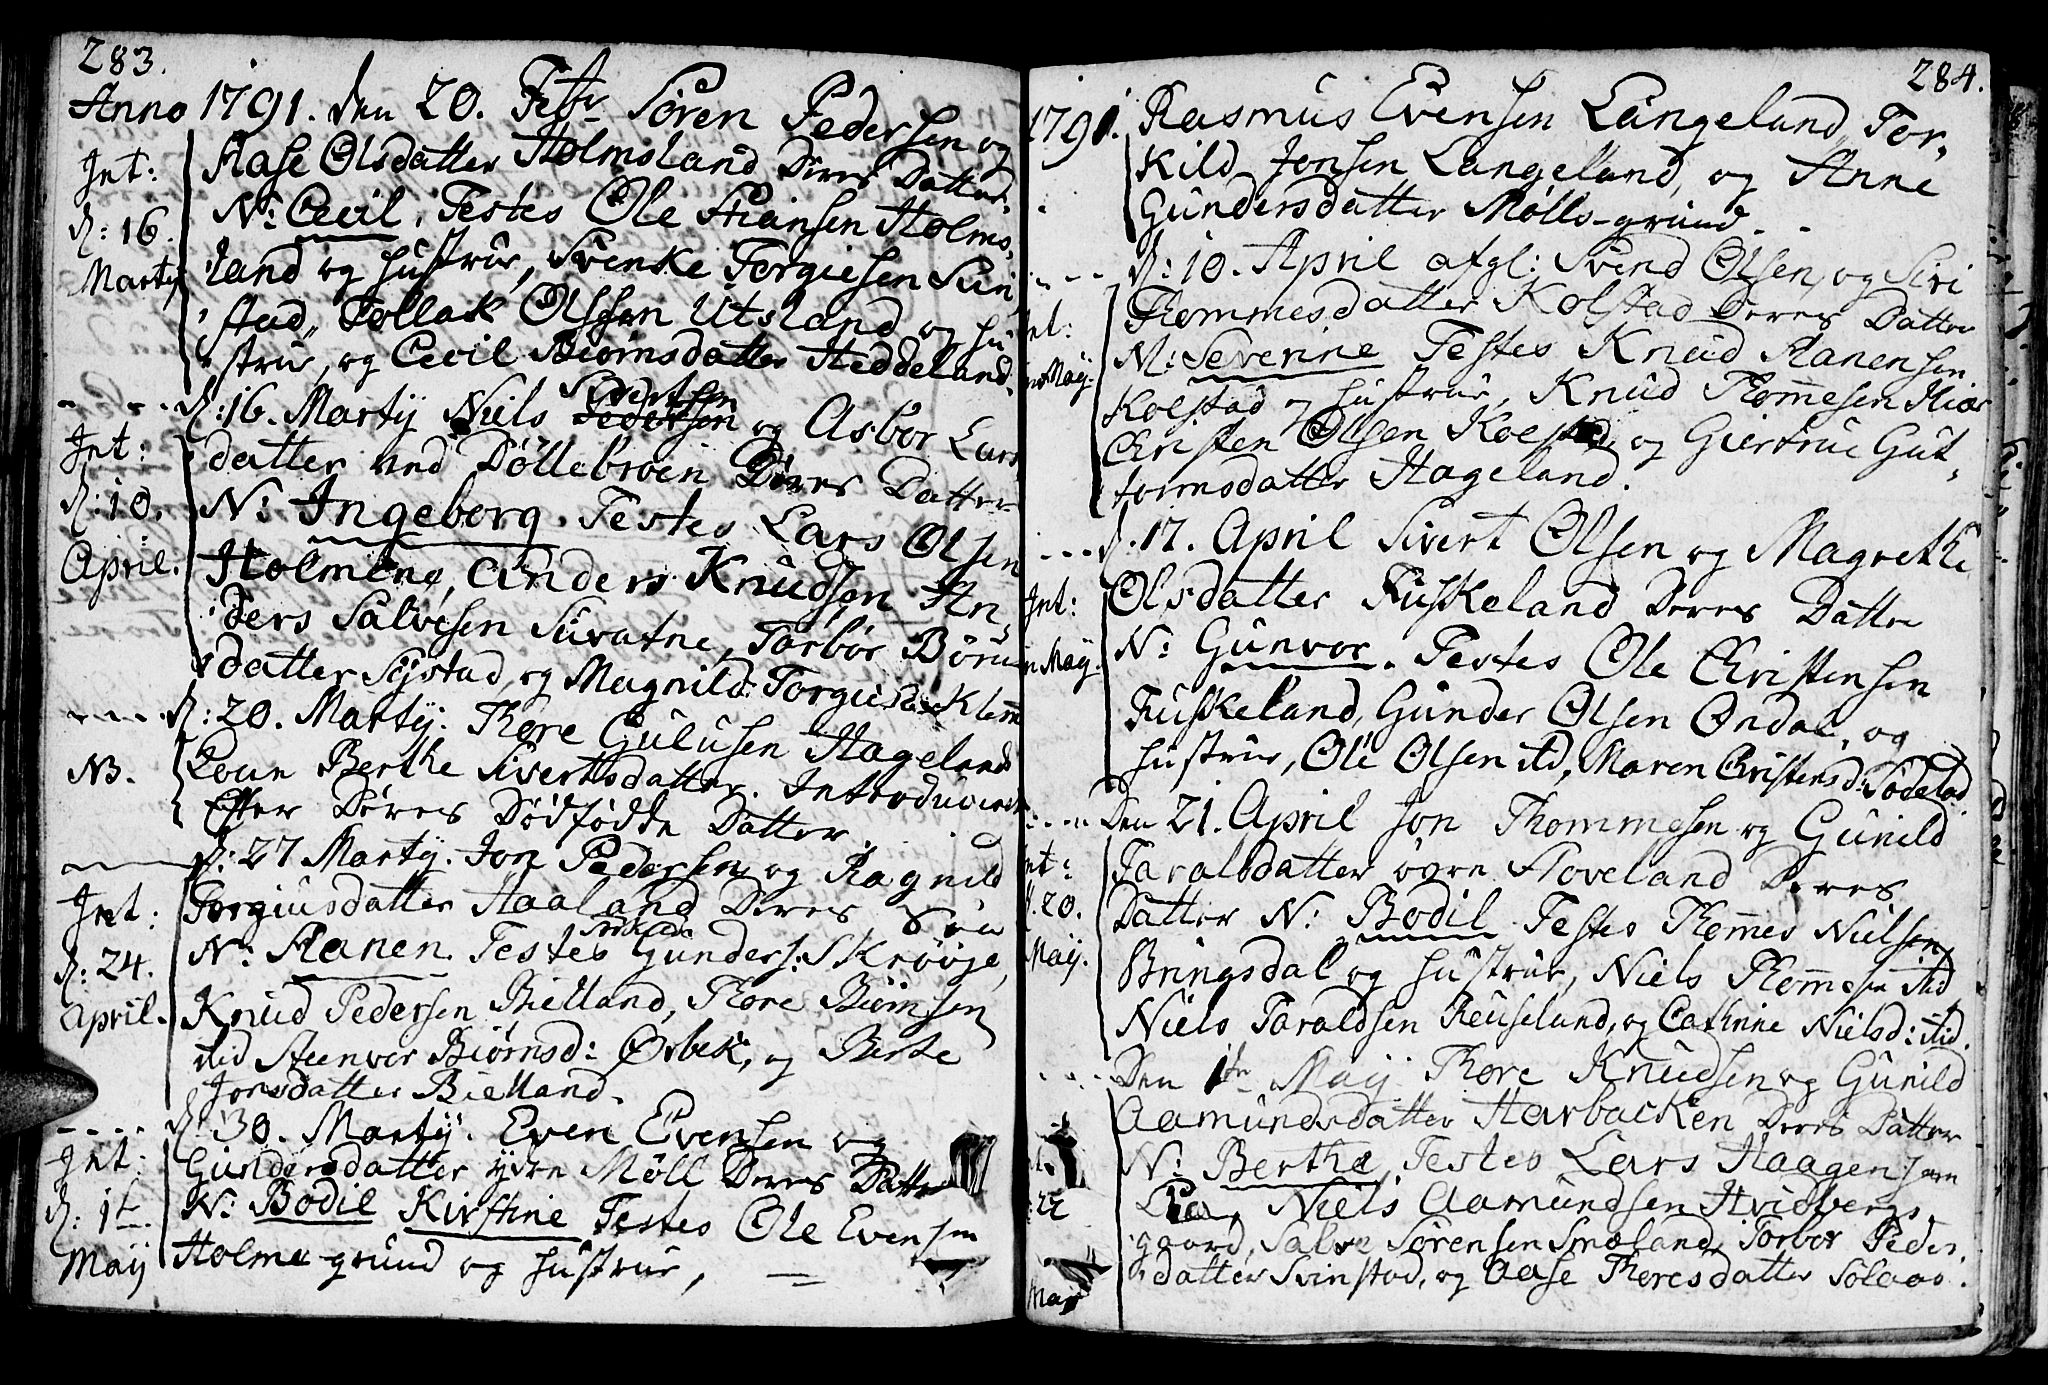 283.
Anno 1791. den 20. Febr Sören Pedersen og
Aase Olsdatter Holmsland Deres Datter.
Int:
N: Cecil, Testes Ole Stiansen Holms-
d: 16.
land og Hustrue, Svenke Torgiesen Sun-
Marty
stad, Tollak Olssen Utsland og Hu-
strue, og Cecil Biörnsdatter Heddeland.
d: 16. Marty Niels Pedersen Sivertsen og Asbör Lars
Int:
datter ved Döllebroen Deres Datter
d: 10.
N: Ingeborg. Testes Lars Olsen
April.
Holmene, Anders Knudsen, An-
ders Salvesen Sirvatne, Torbör Börns
datter Systad, og Magnild: Torgius
d: 20. Marty. Thore Gulusen Hageland
NB.
Koun Berthe Sivertsdatter. Introduceret
Efter Deres Dödfödde Datter.
d: 27 Marty. Jon Pedersen og Ragnild
Int:
Torgiusdatter Haaland Deres Sön
d: 24.
N: Aanen. Testes Gunders: Skrööye,
April.
Knud Pedersen Bielland, Thore Biörnsen
ibid Steenver Biörnsd: Orbek, og Berte
Jonsdatter Bielland.
d: 30. Marty. Even Evensen og
Int:
Gundersdatter ydre Möll Deres Datter
d: 1te.
N: Bodil Kirstine Testes Ole Evensen
May
Holme-grund og Hustrue,
284.
1791.
Rasmus Evensen Langeland, Tor-
kild Jonsen Langeland, og Anne
Gundersdatter Mölls-grund.
d: 10. April afgl: Svend Olsen, og Siri
Int:
Thommesdatter Kolstad Deres Datter
N: Severine Testes Knud Aanensen
May.
Kolstad og Hustrue, Knud Thommesen
Christen Olsen Kolstad, og Giertrue Gut-
tormsdatter Hageland.
d. 17. April Sivert Olsen og Magrethe
Int:
Olsdatter Fuskeland Deres Datter
May.
N: Gunvor. Testes Ole Christensen
Fuskeland, Gunder Olsen Ondal, og
Hustrue, Ole Olsen ibid, Maren Christensd: Södeland
Den 21. April Jon Thommesen og Gunild
Int:
Taraldsdatter övre Hoveland Deres
d. 20.
Datter N: Bodil Testes Thommes Nielsen
May.
Bringsdal og Hustrue, Niels Thommesen ibid
Niels Taraldsen Reuseland, og Cathrine Nielsd: ibid.
Den 1te May Thore Knudsen og Gunild
Aamundsdatter Harbacken Deres Datter
N: Berthe, Testes Lars Haagensen
22
Niels Aamundsen Hvidbergs-
gaard, Salve Sörensen Smeland, Torbor Peders-
datter Svinstad, og Aase Thoresdatter Solaas.
May